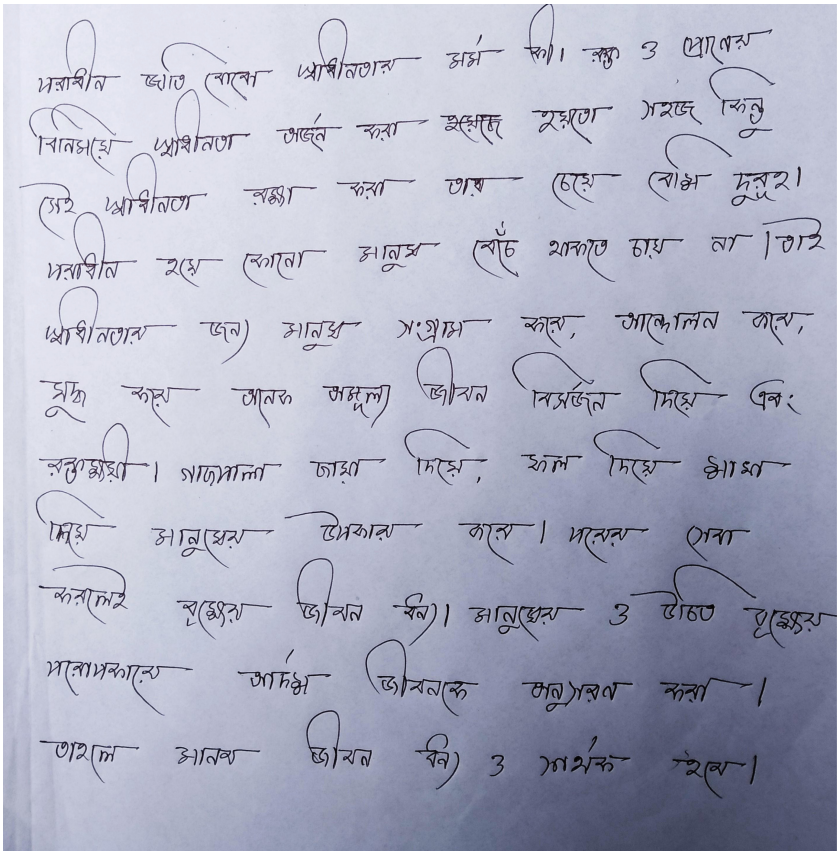 পরাধীন জাতি বোঝে স্বাধীনতার মর্ম কী। রক্ত ও প্রানের
বিনিময়ে স্বাধীনতা অর্জন করা হয়েছে হয়তো সহজ কিন্তু
সেই স্বাধীনতা রক্ষা করা তার চেয়ে বেশি দুরূহ।
পরাধীন হয়ে কোনো মানুষ বেঁচে থাকতে চায় না। তাই
স্বাধীনতার জন্য মানুষ সংগ্রাম করে, আন্দোলন করে,
যুদ্ধ করে অনেক অমূল্য জীবন বিসর্জন দিয়ে এবং
রক্তক্ষয়ী। গাছপালা ছায়া দিয়ে, ফল দিয়ে শাখা
দিয়ে মানুষের উপকার করে। পরের সেবা
করলেই বৃক্ষের জীবন ধন্য। মানুষের ও উচিত বৃক্ষের
পরোপকারে আদর্শ জীবনকে অনুসরন করা।
তাহলে মানব জীবন ধন্য ও সার্থক হবে।